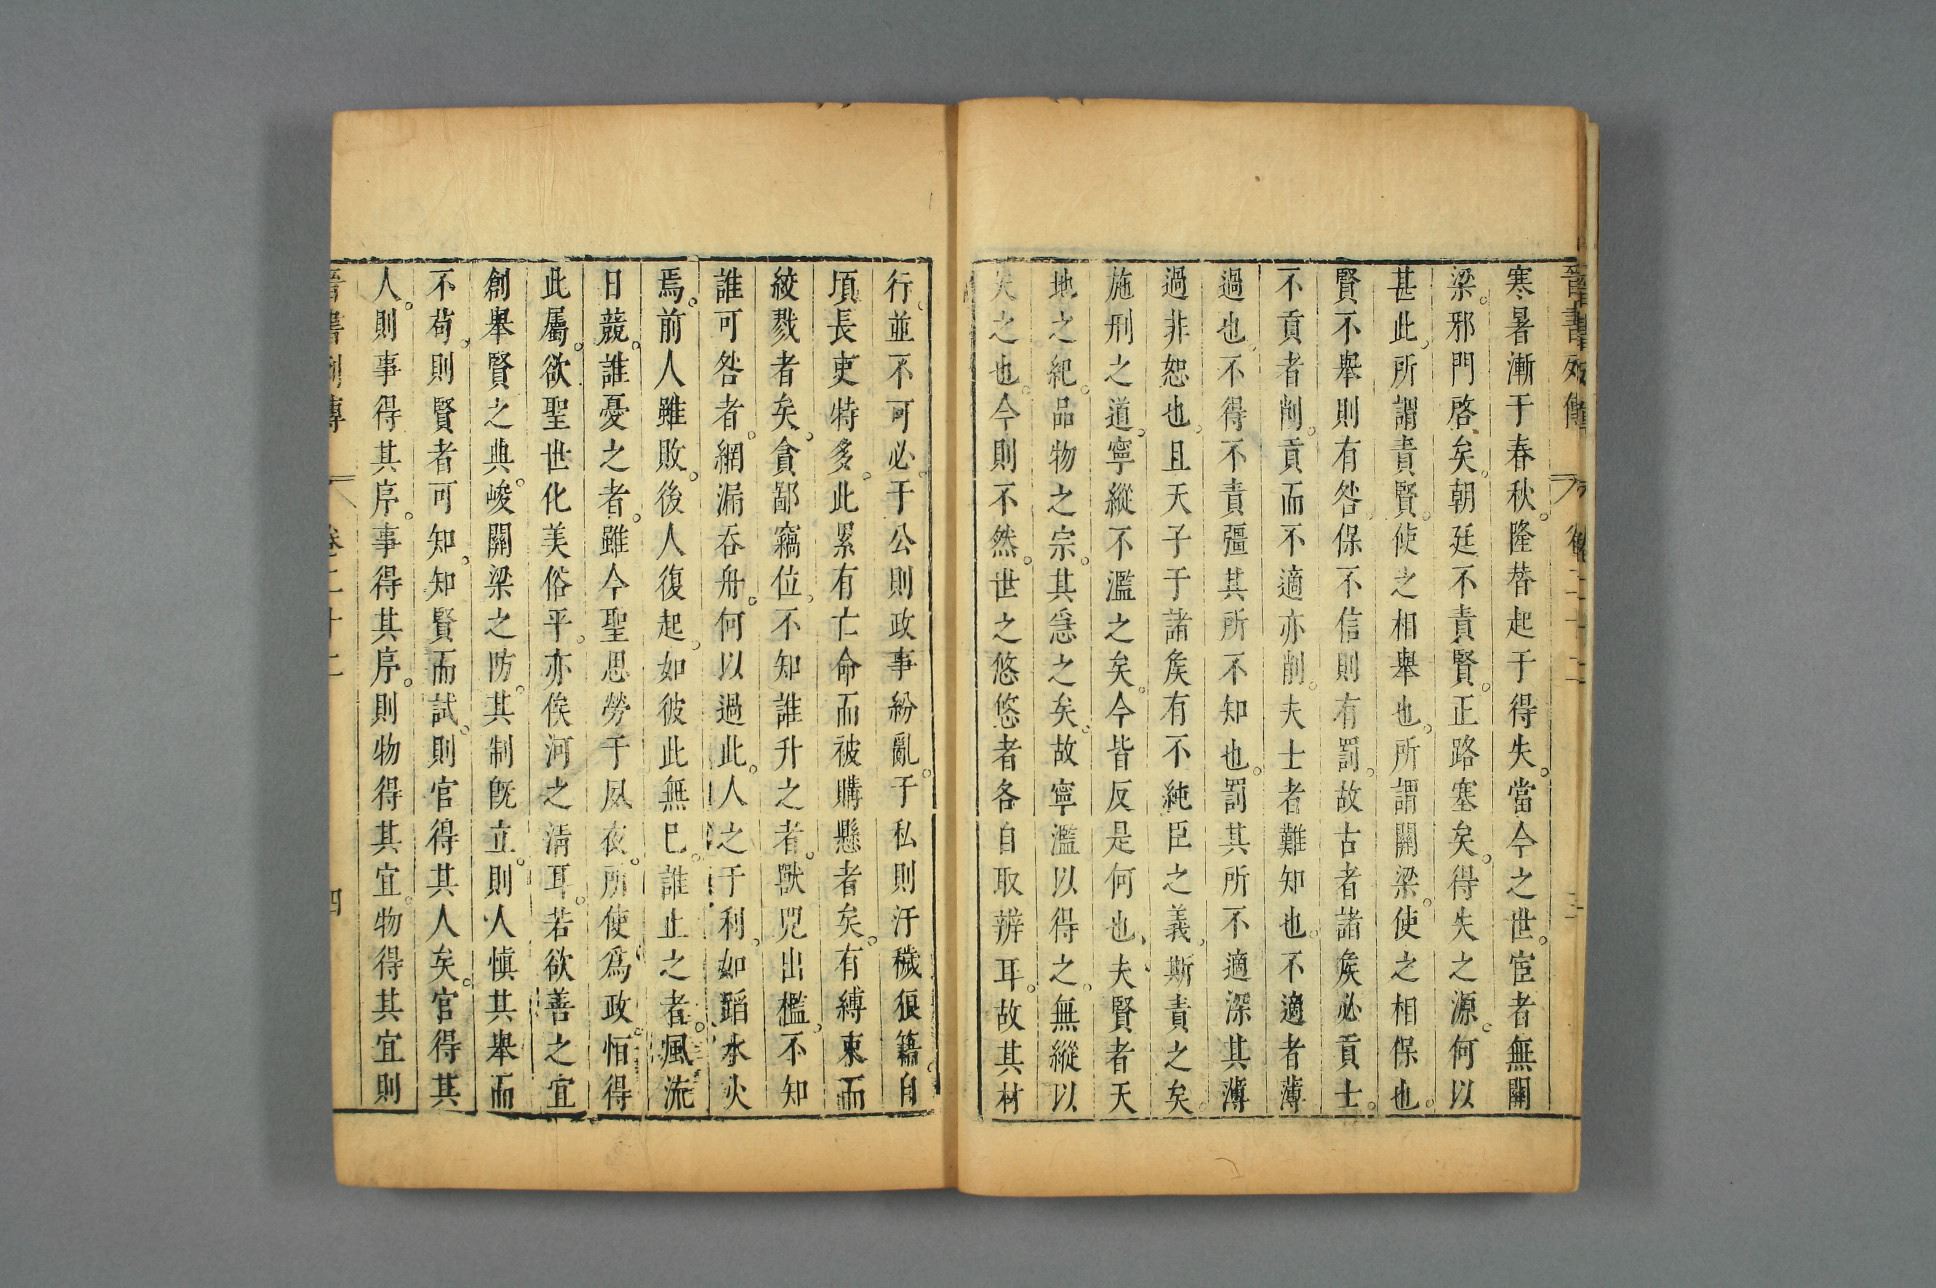 晉書列傳 卷二十二 三
寒暑漸于春秋。隆替起于得失。當今之世。宦者無關
梁。邪門啓矣。朝廷不責賢。正路塞矣。得失之源。何以
甚此。所謂責賢。使之相舉也。所謂關梁。使之相保也。
賢不舉則有咎。保不信則有罰。故古者諸矦必貢士。
不貢者削。貢而不適亦削。夫士者難知也。不適者薄
過也。不得不責彊其所不知也。罰其所不適深其薄
過非恕也。且天子于諸矦有不純臣之義。斯責之矣。
施刑之道。寧縱不濫之矣。今皆反是何也。夫賢者天
地之紀。品物之宗。其急之矣。故寧濫以得之。無縱以
失之也。今則不然。世之悠悠者各自取辨耳。故其材
行、並不可必。于公則政事紛亂。于私則汙穢狼籍。自
頃長吏特多。此累有亡命而被購懸者矣。有縛束而
絞戮者矣。貪鄙竊位。不知誰升之者。獸兕出檻。不知
誰可咎者。網漏吞舟。何以過此。人之于利。如蹈水火
焉。前人雖敗。後人復起。如彼此無巳。誰止之者。風流
日競。誰憂之者。雖今聖思勞于夙夜。所使爲政。恒得
此屬。欲聖世化美俗平。亦俟河之淸耳。若欲善之宜
創舉賢之典。峻關梁之防。其制旣立。則人愼其舉而
不苟。則賢者可知。知賢而試。則官得其人矣。官得其
人。則事得其序。事得其序。則物得其宜。物得其宜則
晉書列傳 卷二十二 四